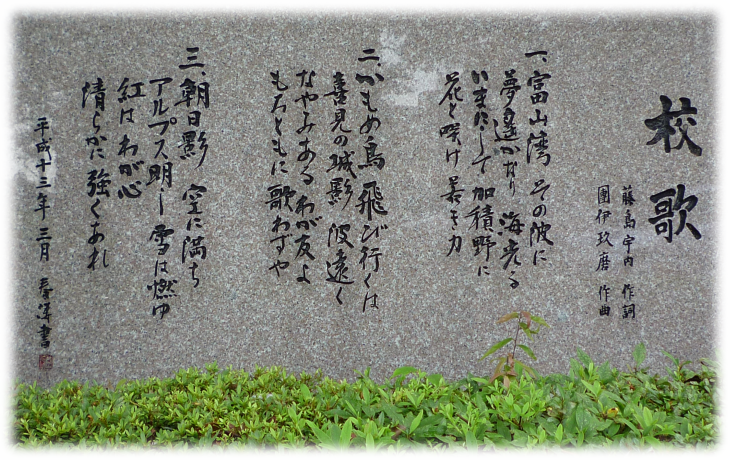 校歌
藤島宇内 作詞
團伊玖磨 作曲
一、富山湾 その波に
夢遥かなり 海光る
いまにして 加積野に
花と咲け 若き力
二、かもめ鳥 飛び行くは
喜見の城影 波遠く
なやみある わが友よ
もろともに 歌わずや
三、朝日影 空に満ち
アルプス明し 雪は燃ゆ
紅は わが心
清らかに 強くあれ
平成十三年 三月 書